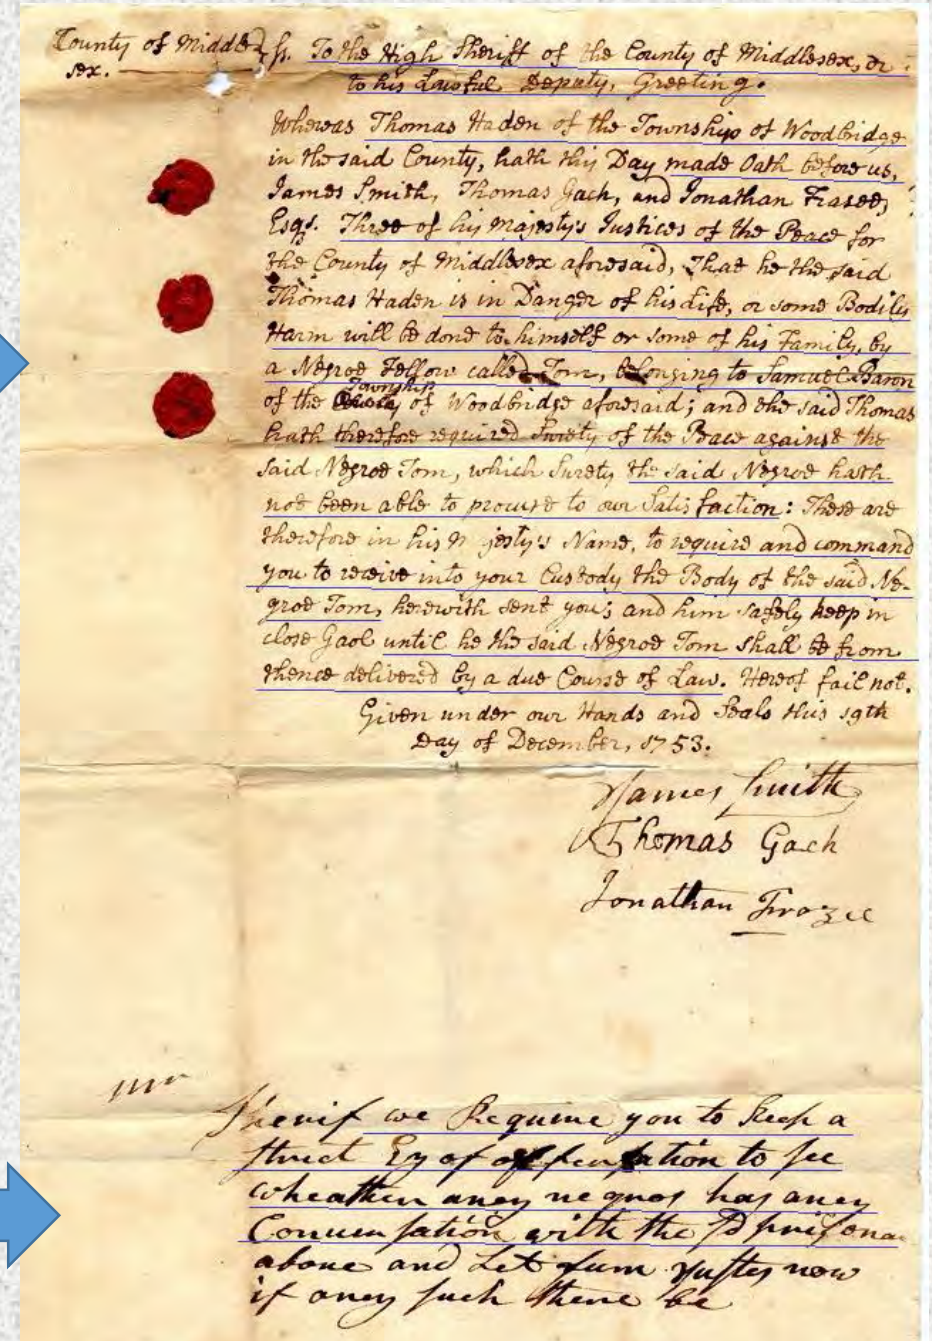 County of Middle
sex.
ss. To the High Sheriff of the County of Middlesex, or
to his Lawful Deputy, Greeting.
Whereas Thomas Haden of the Township of Woodbridge
in the said County, hath this Day made Oath before us,
James Smith, Thomas Gach, and Jonathan Frazee,
Esqs. Three of his Majesty's Justices of the Peace for
the County of Middlesex aforesaid, That he the said
Thomas Haden is in Danger of his Life, or some Bodily
Harm will be done to himself or some of his Family, by
a Negroe Fellow called Tom, belonging to Samuel Baron
Township
of the of Woodbridge aforesaid; and the said Thomas
hath therefore required Surety of the Peace against the
said Negroe Tom, which Surety the said Negroe hath
not been able to procure to our Satisfaction: These are
therefore in his M jesty's Name, to require and command
you to receive into your Custody the Body of the said Ne-
groe Tom, herewith sent you; and him safely keep in
close Gaol until he the said Negroe Tom shall be from
thence delivered by a due Course of Law. Hereof fail not.
Given under our Hands and Seals this 19th
Day of December, 1753.
James Smith
Thomas Gach
Jonathan Frazee
Sherif we Require you to keep a
strict Ey of to see
wheather aney negros has aney
Conversation with the
above and Let sum now
if aney such there be